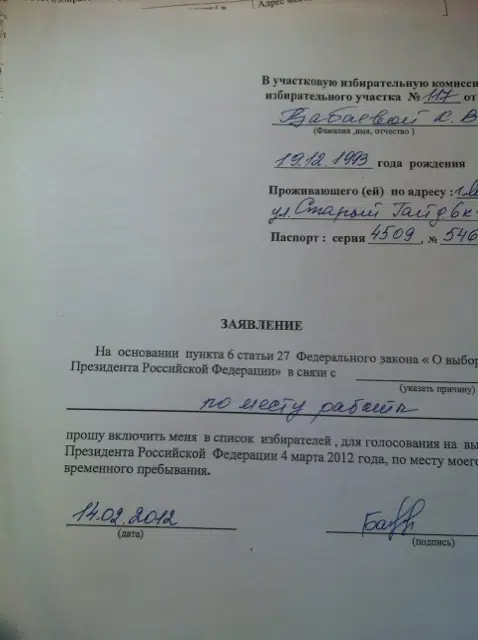 Адрес мес
В участковую избирательную комисси
избирательного участка № 117 от
Бабаевой К. В
(Фамилия ,имя, отчество )
19.12.1993 года рождения
Проживающего (ей) по адресу :
ул. Старый Гай д 6 к-
Паспорт : серия 4509 , № 546
ЗАЯВЛЕНИЕ
На основании пункта 6 статьи 27 Федерального закона « О выбор
Президента Российской Федерации» в связи с
(указать причину)
по месту работы
прошу включить меня в список избирателей , для голосования на вы
Президента Российской Федерации 4 марта 2012 года, по месту моег
временного пребывания.
14.02.2012
(дата) (подпись)